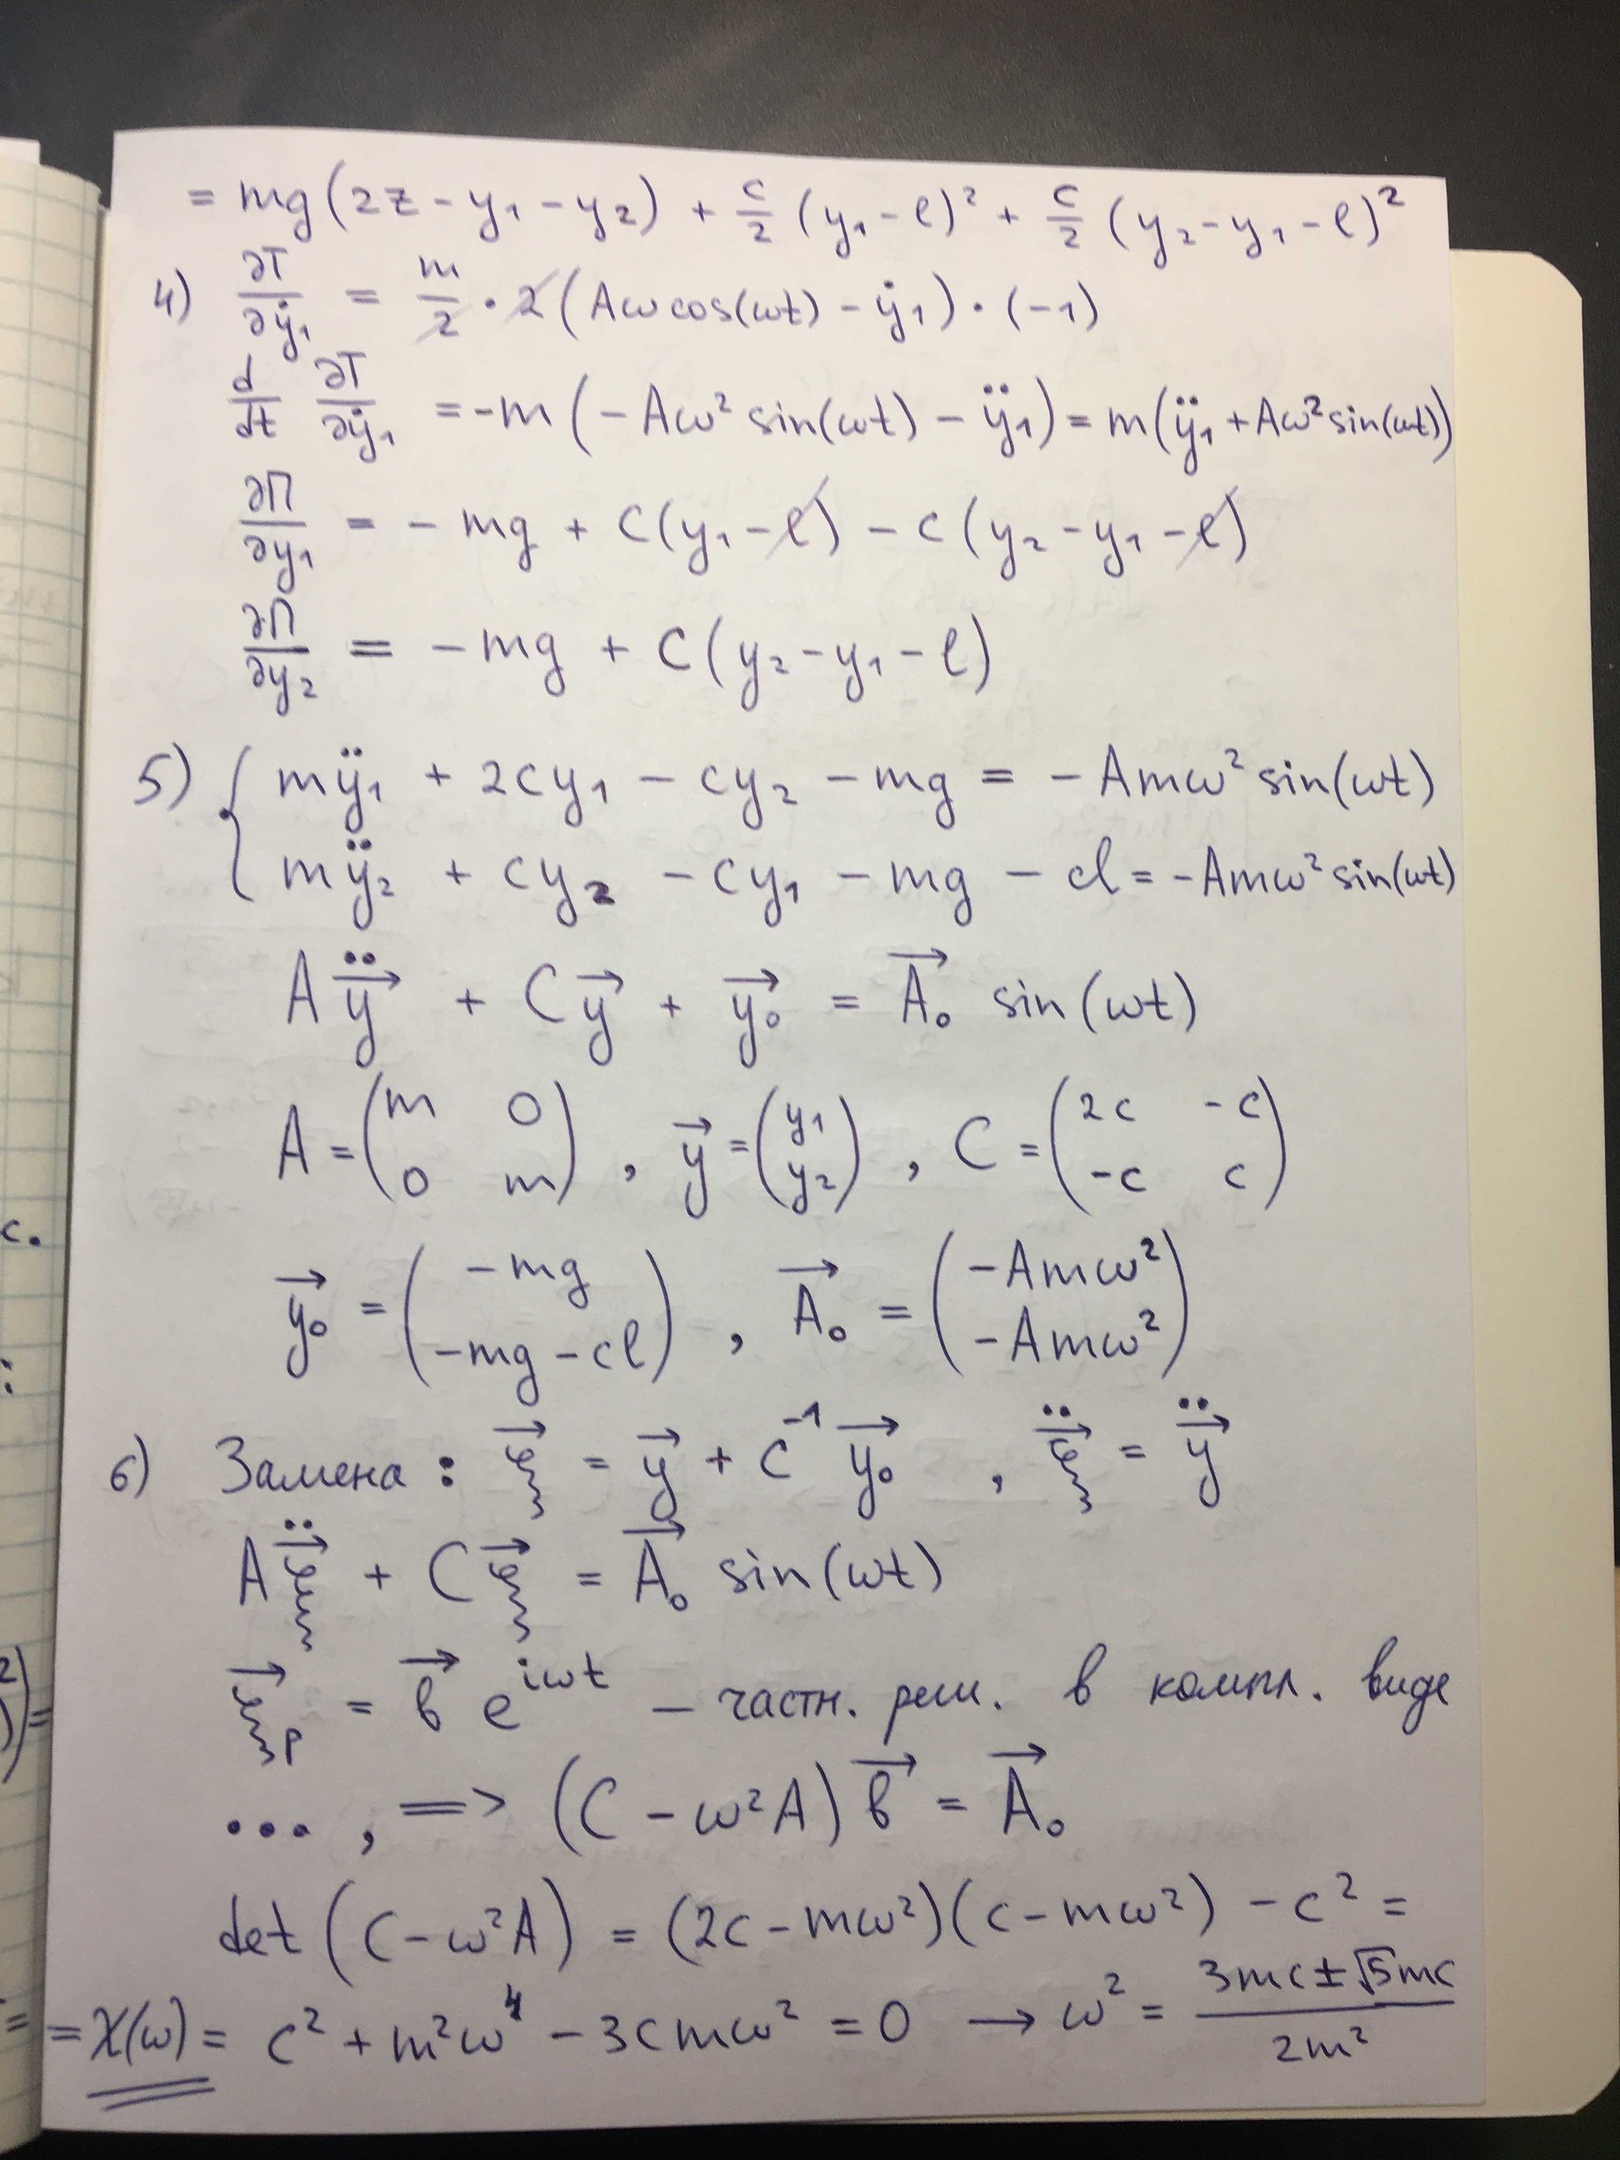 = mg(2z - y₁ - y₂) + c/2 (y₁ - l)² + c/2 (y₂ - y₁ - l)²
4) ∂T/∂ẏ₁ = m/2 · 2(Aω cos(ωt) - ẏ₁) · (-1)
d/dt ∂T/∂ẏ₁ = -m(-Aω² sin(ωt) - ÿ₁) = m(ÿ₁ + Aω² sin(ωt))
∂П/∂y₁ = - mg + C(y₁ - l) - c(y₂ - y₁ - l)
∂П/∂y₂ = - mg + C(y₂ - y₁ - l)
5) { mÿ₁ + 2cy₁ - cy₂ - mg = - Amω² sin(ωt)
mÿ₂ + cy₂ - cy₁ - mg - cl = -Amω² sin(ωt)
A ÿ⃗ + C y⃗ + y⃗₀ = A⃗₀ sin(ωt)
A = (m 0; 0 m), y⃗ = (y₁; y₂), C = (2c -c; -c c)
y⃗₀ = (-mg; -mg - cl), A⃗₀ = (-Amω²; -Amω²)
6) Замена: ξ⃗ = y⃗ + C⁻¹ y⃗₀, ξ⃗̈ = y⃗̈
A ξ⃗̈ + C ξ⃗ = A⃗₀ sin(ωt)
ξ⃗ₚ = b⃗ e^{iωt} — частн. реш. в компл. виде
..., => (C - ω²A) b⃗ = A⃗₀
det(C - ω²A) = (2c - mω²)(c - mω²) - c² =
= χ(ω) = c² + m²ω⁴ - 3cmω² = 0 → ω² = (3mc ± √5 mc)/2m²